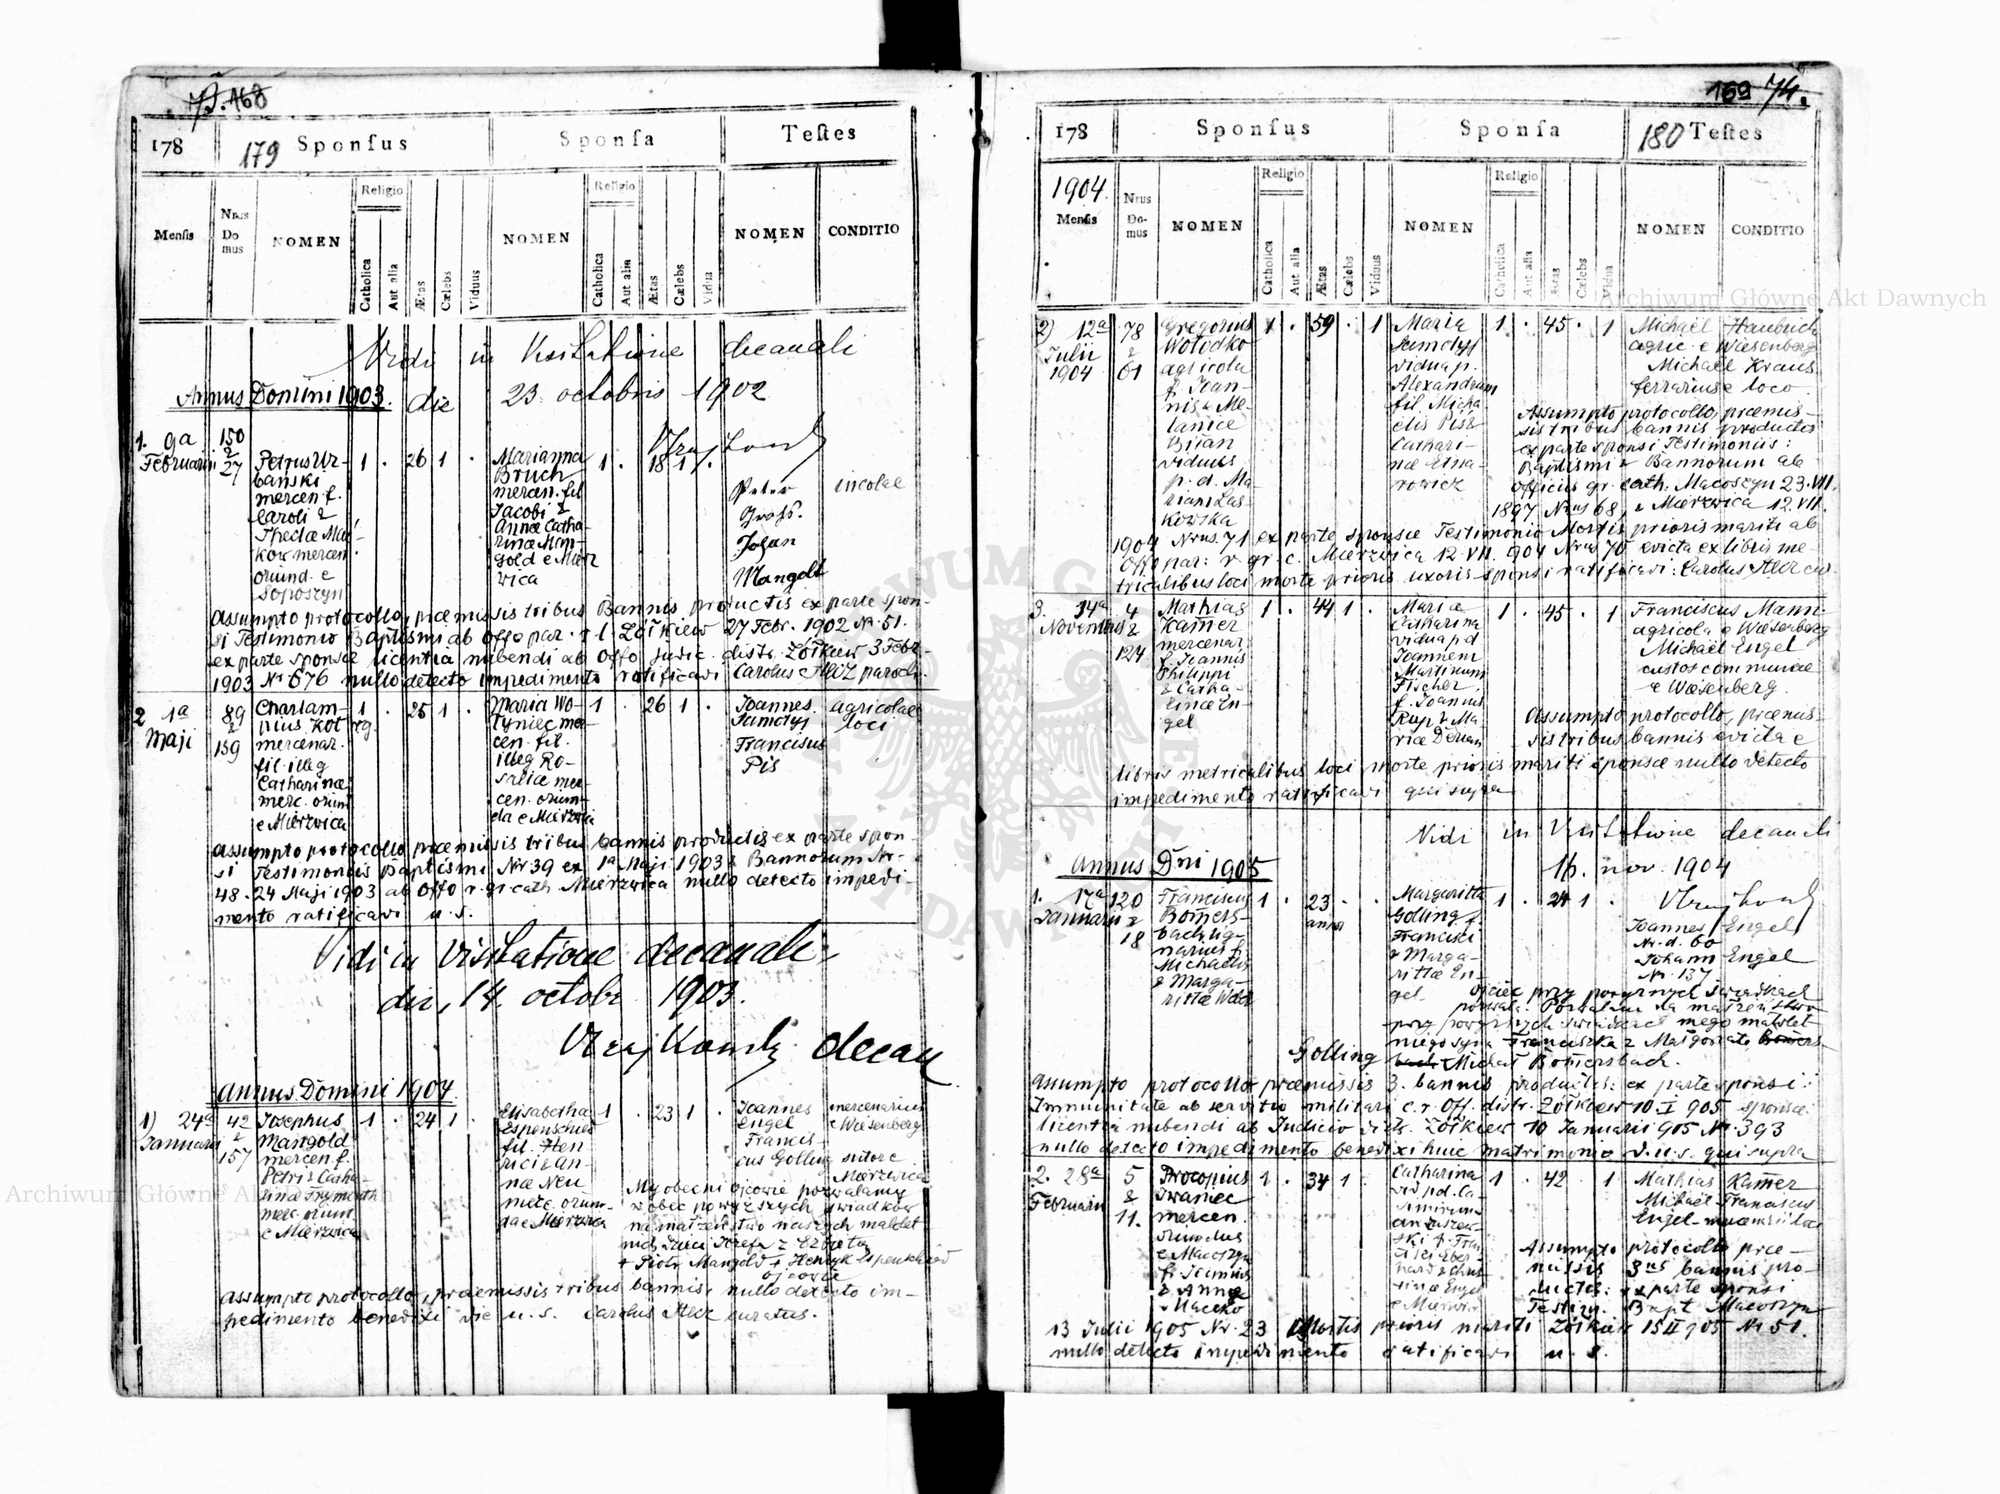 73. 168
178
179
Sponsus
Sponsa
Testes
Mensis
Nrus Do mus
NOMEN
Religio
Catholica
Aut alia
Ætas
Cælebs
Viduus
NOMEN
Religio
Catholica
Aut alia
Ætas
Cælebs
Vidua
NOMEN
CONDITIO
Vidi in Visitatione decanali
Annus Domini 1903. die 23 octobris 1902
1. 9a
Februarii
150
2
27
Petrus Ur-
banski
mercen. f.
Caroli &
Theclæ Ma-
kow mercen.
oriund. e
Soposzyn
1 . 26 1 .
Marianna
Bruch
mercen. fil
Jacobi &
Annæ Catha-
rinæ Man-
gold e Mier
zvica
1 . 18 1 .
Peter
Groß.
Johan
Mangolt
incolae
Assumpto protocollo, præmissis tribus Bannis productis ex parte spon-
si Testimonio Baptismi ab Offo par. r. l. Żółkiew 27 Febr. 1902 Nr. 51.
ex parte sponsæ licentia nubendi ab Offo Judic. distr. Żółkiew 3 Febr.
1903 Nr 676 nullo detecto impedimento ratificavi Carolus paroch.
2 1a
Maji
89
2
159
Charlam-
pius Kot
mercenar.
fil. illeg
Catharinæ
merc. oriun
e Mierzwica
1 rg . 25 1 .
Maria Wo-
lyniec mer-
cen. fil.
illeg Ro-
saliæ mer-
cen. oriun-
da e Mierzwica
1 . 26 1 .
Joannes
Jamotys
Franciscus
Pis
agricolae
loci
Assumpto protocollo præmissis tribus bannis productis ex parte spon-
si Testimoniis Baptismi Nr 39 ex 1a Maji 1903 & Bannorum Nr-
48. 24 Maji 1903 ab Offo r. gr cath Mierzwica nullo detecto impedi-
mento ratificavi u. s.
Vidi in Visitatione decanali
die, 14. octobr 1903.
decan
Annus Domini 1904
1) 24a
Januarii
42
2
157
Josephus
Mangold
mercen. f.
Petri & Catha-
rinæ
merc. oriun.
e Mierzwica
1 . 24 1 .
Elisabetha
Espenschied
fil. Hen
rici & An-
næ Neu
merc. oriun-
da e Mierzwica
1 . 23 1 .
Joannes
Engel
Francis-
cus Golling
mercenarius
e Wiesenberg
sutor e
Mierzwica
My obecni ojcowie pozwalamy
wobec powyższych świadków
na małżeństwo naszych małolet
nich dzieci Józefa z Elżbietą
+ Piotr Mangold + Henryk Espenschied
ojcowie
Assumpto protocollo, praemissis tribus bannis, nullo detecto im-
pedimento benedixi die u. s. Carolus curatus.
169 74.
178
Sponsus
Sponsa
180 Testes
1904.
Mensis
Nrus Do- mus
NOMEN
Religio
Catholica
Aut alia
Ætas
Cælebs
Viduus
NOMEN
Religio
Catholica
Aut alia
Ætas
Cælebs
Vidua
NOMEN
CONDITIO
2) 12a
Julii
1904
78
2
61
Gregorius
Wolodko
agricola
f. Joan-
nis & Me-
laniæ
Bijan
viduus
p. d. Ma-
riam Las-
kowska
1 . 59 . 1
Maria
Jamotys
vidua p.
Alexandrum
fil. Micha
elis Pis &
Cathari-
næ
1 . 45 . 1
Michael Haubuch
agric. e Wiesenberg
Michael Kraus
ferrarius e loco
Assumpto protocollo, præmis-
sis tribus bannis productis
ex parte sponsi Testimoniis:
Baptismi & Bannorum ab
Officiis gr. cath. Macoszyn 23. VII.
1897 Nrus 68, & Mierzwica 12. VII.
1904 Nrus. 71 ex parte sponsæ Testimonio Mortis prioris mariti ab
Offo par: r. gr. c. Mierzwica 12. VII. 904 Nrus 70 evicta ex libris me-
tricalibus loci morte prioris uxoris sponsi ratificavi: Carolus
3. 14a
Novembris
4
&
124
Mathias
Kamer
mercenar.
f. Joannis
Philippi
& Catha-
rinæ En-
gel
1 . 44 1 .
Maria
Catharina
vidua p d
Joannem
Martinum
Fischer,
f. Joannis
Rup & Ma-
riæ
1 . 45 . 1
Franciscus Mann
agricola e Wiesenberg
Michael Engel
custos communæ
e Wiesenberg.
Assumpto protocollo, præmis-
sis tribus bannis evicta e
libris metricalibus loci morte prioris mariti sponsæ nullo detecto
impedimento ratificavi qui supra
Vidi in Visitatione decanali
16. nov. 1904
Annus Dni 1905
1. 17a
Januarii
120
2
18
Franciscus
Bomers-
bach lig-
narius f.
Michaelis
& Marga-
rittæ
1 . 23 . .
annor
Margaritta
Golling f.
Francisci
& Marga-
rittæ En-
gel
1 . 24 1 .
Joannes Engel
Nr. d. 60
Johann Engel
Nr. 137
Ojciec przy powyższych świadkach
pozwala. Pozwalam na małżeństwo
przy powyższych świadkach mego małolet
niego syna Franciszka z Małgorzatą Bomers-
bach Golling Michał Bomersbach.
Assumpto protocollo præmissis 3. bannis productis: ex parte sponsi:
Immunitate ab servitio militari c. r. Off. distr. Żółkiew 10. I 905 sponsæ:
licentia nubendi ab Judicio distr. Żółkiew 10 Januarii 905 Nr. 393
nullo detecto impedimento benedixi huic matrimonio d. u. s. qui supra
2. 28a
Februarii
5
&
11.
Procopius
Iwaniec
mercen.
e Macoszyn
f. Joannis
& Annæ
Haceko
1 . 34 1 .
Catharina
vid p d. Ca-
simirum
Engel
e Mierzwi
1 . 42 . 1
Mathias Kamer
Michael Franciscus
Engel
Assumpto protocollo præ-
missis 3us bannis pro-
ductis: ex parte sponsi
Testim. Bapt Macoszyn
13 Julii 1905 Nr. 23 Mortis prioris mariti Żółkiew 15 II 905 Nr 51.
nullo detecto impedimento ratificavi u. s.
Archiwum Główne Akt Dawnych